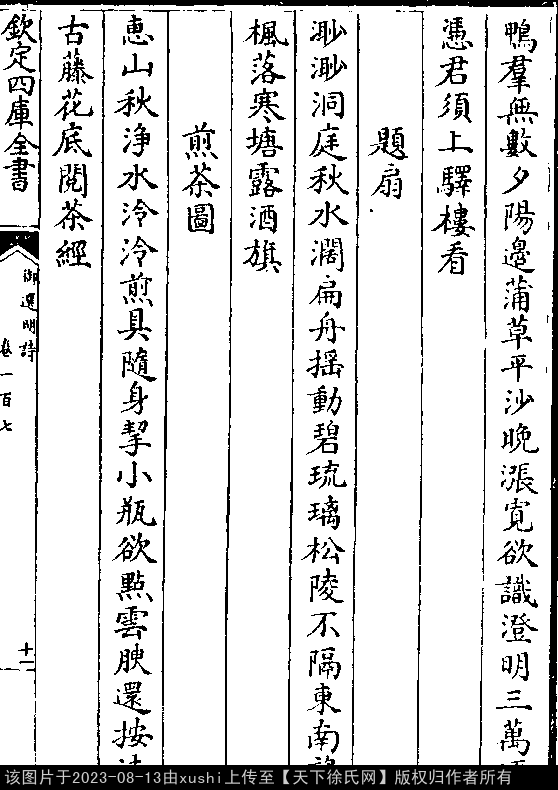 鴨羣無數夕陽邉蒲草平沙晚漲寛欲識澄明三萬
憑君須上驛樓看
題扇
渺渺洞庭秋水濶扁舟揺動碧琉璃松陵不隔東南
楓落寒塘露酒旗
煎茶圖
恵山秋浄水泠泠煎具隨身挈小瓶欲㸃雲腴還按
古藤花底閲茶經
欽定四庫全書
御選明詩
卷一百七
十一
该图片于2023-08-13由xushi上传至【天下徐氏网】版权归作者所有